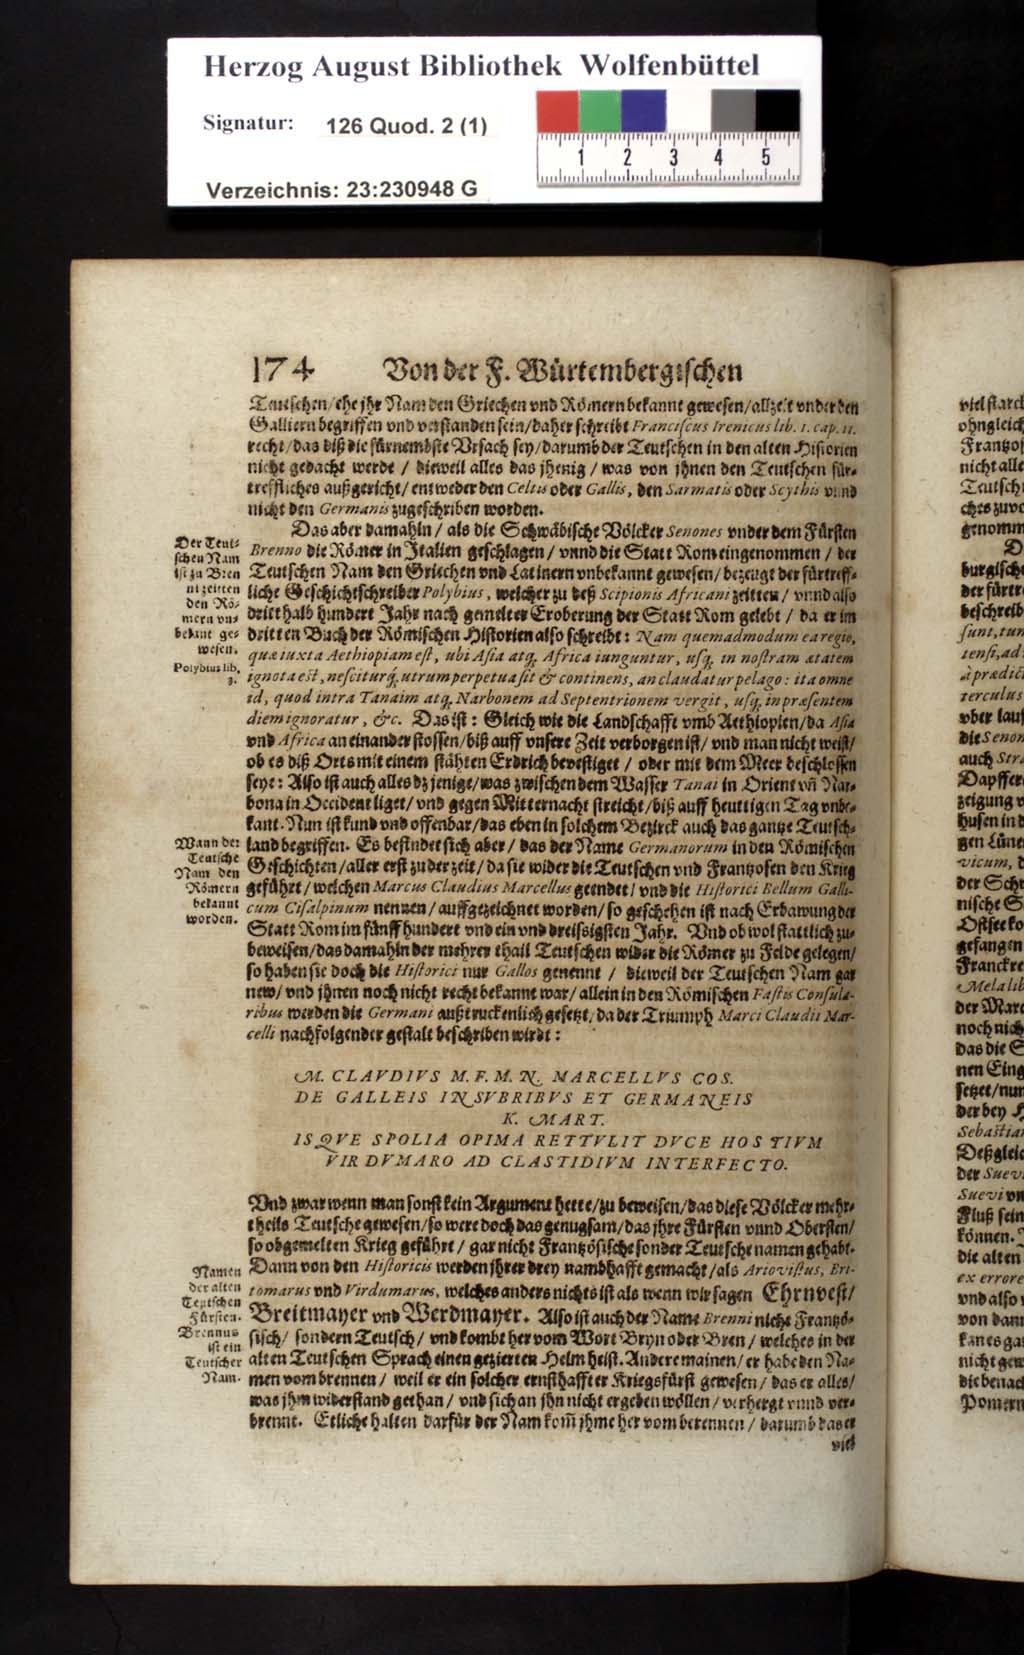 Herzog August Bibliothek Wolfenbüttel
Signatur: 126 Quod. 2 (1)
1 2 3 4 5
Verzeichnis: 23:230948 G
174 Von der F. Würtembergischen
Teutschen/ ehe jhr Nam den Griechen vnd Römern bekannt gewesen/ allzeit vnder den
Galliern begriffen vnd verstanden sein/ daher schreibt Franciscus Irenicus lib. 1. cap. 11.
recht/ das diß die fürnembste Vrsach sey/ darumb der Teutschen in den alten Historien
nicht gedacht werde / dieweil alles das jhenig / was von jhnen den Teutschen für-
treffliches außgericht/ entweder den Celtis oder Gallis, den Sarmatis oder Scythis vnnd
nicht den Germanis zugeschriben worden.
Das aber damahln / als die Schwäbische Völcker Senones vnder dem Fürsten
Brenno die Römer in Italien geschlagen / vnnd die Statt Rom eingenommen / der
Teutschen Nam den Griechen vnd Latinern vnbekannt gewesen/ bezeugt der fürtreff-
liche Geschichtschreiber Polybius, welcher zu deß Scipionis Africani zeitten/ vnnd also
dritthalb hundert Jahr nach gemelter Eroberung der Statt Rom gelebt / da er im
dritten Buch der Römischen Historien also schreibt: Nam quemadmodum ea regio,
quæ iuxta Aethiopiam est, ubi Asia atq; Africa iunguntur, usq; in nostram ætatem
ignota est, nesciturq́; utrum perpetua sit & continens, an claudatur pelago: ita omne
id, quod intra Tanaim atq; Narbonem ad Septentrionem vergit, usq; in præsentem
diem ignoratur, &c. Das ist: Gleich wie die Landschafft vmb Aethiopien/ da Asia
vnd Africa an einander stossen/ biß auff vnsere Zeit verborgen ist/ vnd man nicht weist/
ob es diß Orts mit einem stähten Erdrich bevestiget / oder mit dem Meer beschlossen
seye: Also ist auch alles dz jenige/ was zwischen dem Wasser Tanai in Orient vn̄ Nar-
bona in Occident liget/ vnd gegen Mitternacht streicht/ biß auff heuttigen Tag vnbe-
kant. Nun ist kund vnd offenbar/ das eben in solchem Bezirck auch das gantze Teutsch-
land begriffen. Es befindet sich aber / das der Name Germanorum in den Römischen
Geschichten/ aller erst zu der zeit/ da sie wider die Teutschen vnd Frantzosen den Krieg
geführt/ welchen Marcus Claudius Marcellus geendet/ vnd die Historici Bellum Galli-
cum Cisalpinum nennen/ auffgezeichnet worden/ so geschehen ist nach Erbawung der
Statt Rom im fünffhundert vnd ein vnd dreissigsten Jahr. Vnd ob wol stattlich zu-
beweisen/ das damahln der mehrer thail Teutschen wider die Römer zu Felde gelegen/
so haben sie doch die Historici nur Gallos genennt / dieweil der Teutschen Nam gar
new/ vnd jhnen noch nicht recht bekannt war/ allein in den Römischen Fastis Consula-
ribus werden die Germani außtruckenlich gesetzt/ da der Triumph Marci Claudii Mar-
celli nachfolgender gestalt beschriben wirdt:
M. CLAVDIVS M. F. M. N. MARCELLVS COS.
DE GALLEIS INSVBRIBVS ET GERMANEIS
K. MART.
ISQVE SPOLIA OPIMA RETTVLIT DVCE HOSTIVM
VIRDVMARO AD CLASTIDIVM INTERFECTO.
Vnd zwar wenn man sonst kein Argument hette/ zu beweisen/ das diese Völcker mehr-
theils Teutsche gewesen/ so were doch das genugsam/ das jhre Fürsten vnnd Obersten/
so obgemelten Krieg geführt / gar nicht Frantzösische sonder Teutsche namen gehabt.
Dann von den Historicis werden jhrer drey nambhafft gemacht/ als Ariovistus, Bri-
tomarus vnd Virdumarus, welches anders nichts ist als wenn wir sagen Ehrnvest/
Breitmayer vnd Werdmayer. Also ist auch der Name Brenni nicht Frantzö-
sisch/ sondern Teutsch/ vnd kombt her vom Wort Bryn oder Bren / welches in der
alten Teutschen Sprach einen gezierten Helm heist. Andere mainen/ er habe den Na-
men vom brennen / weil er ein solcher ernsthaffter Kriegsfürst gewesen / das er alles/
was jhm widerstand gethan / vnd sich an jhn nicht ergeben wöllen / verhergt vnnd ver-
brennt. Etliche halten darfür der Nam kom̄ jhme her vom berennen / darumb das er
viel
Der Teut-
schen Nam
ist zu Bren
ni zeitten
den Rö-
mern vn-
bekant ge-
wesen.
Polybius lib.
3.
Wann der
Teutsche
Nam den
Römern
bekannt
worden.
Namen
der alten
Teutschen
Fürsten.
Brennus
ist ein
Teutscher
Nam.
viel starck
ohngleich
Frantzos
nicht alle
Teutsch
ches zuvo
genomm
D
burgisch
der fürtr
beschreib
sunt, tum
tensi, ad
à prædict
terculus
vber lauf
die Senon
auch Stra
Dapffer
zeigung v
husen in d
gen Lüne
vicum, d
der Sch
nische S
Ostsee ko
gefangen
Franckre
Mela lib
der Marc
noch nich
das die S
nen Eing
setzet/ nun
der bey H
Sebastian
Deßgleic
der Suevi
Suevi vn
Fluß sein
können.
die alten
ex errore
vnd also
von dann
kan es ga
nicht gew
die benach
Pomern